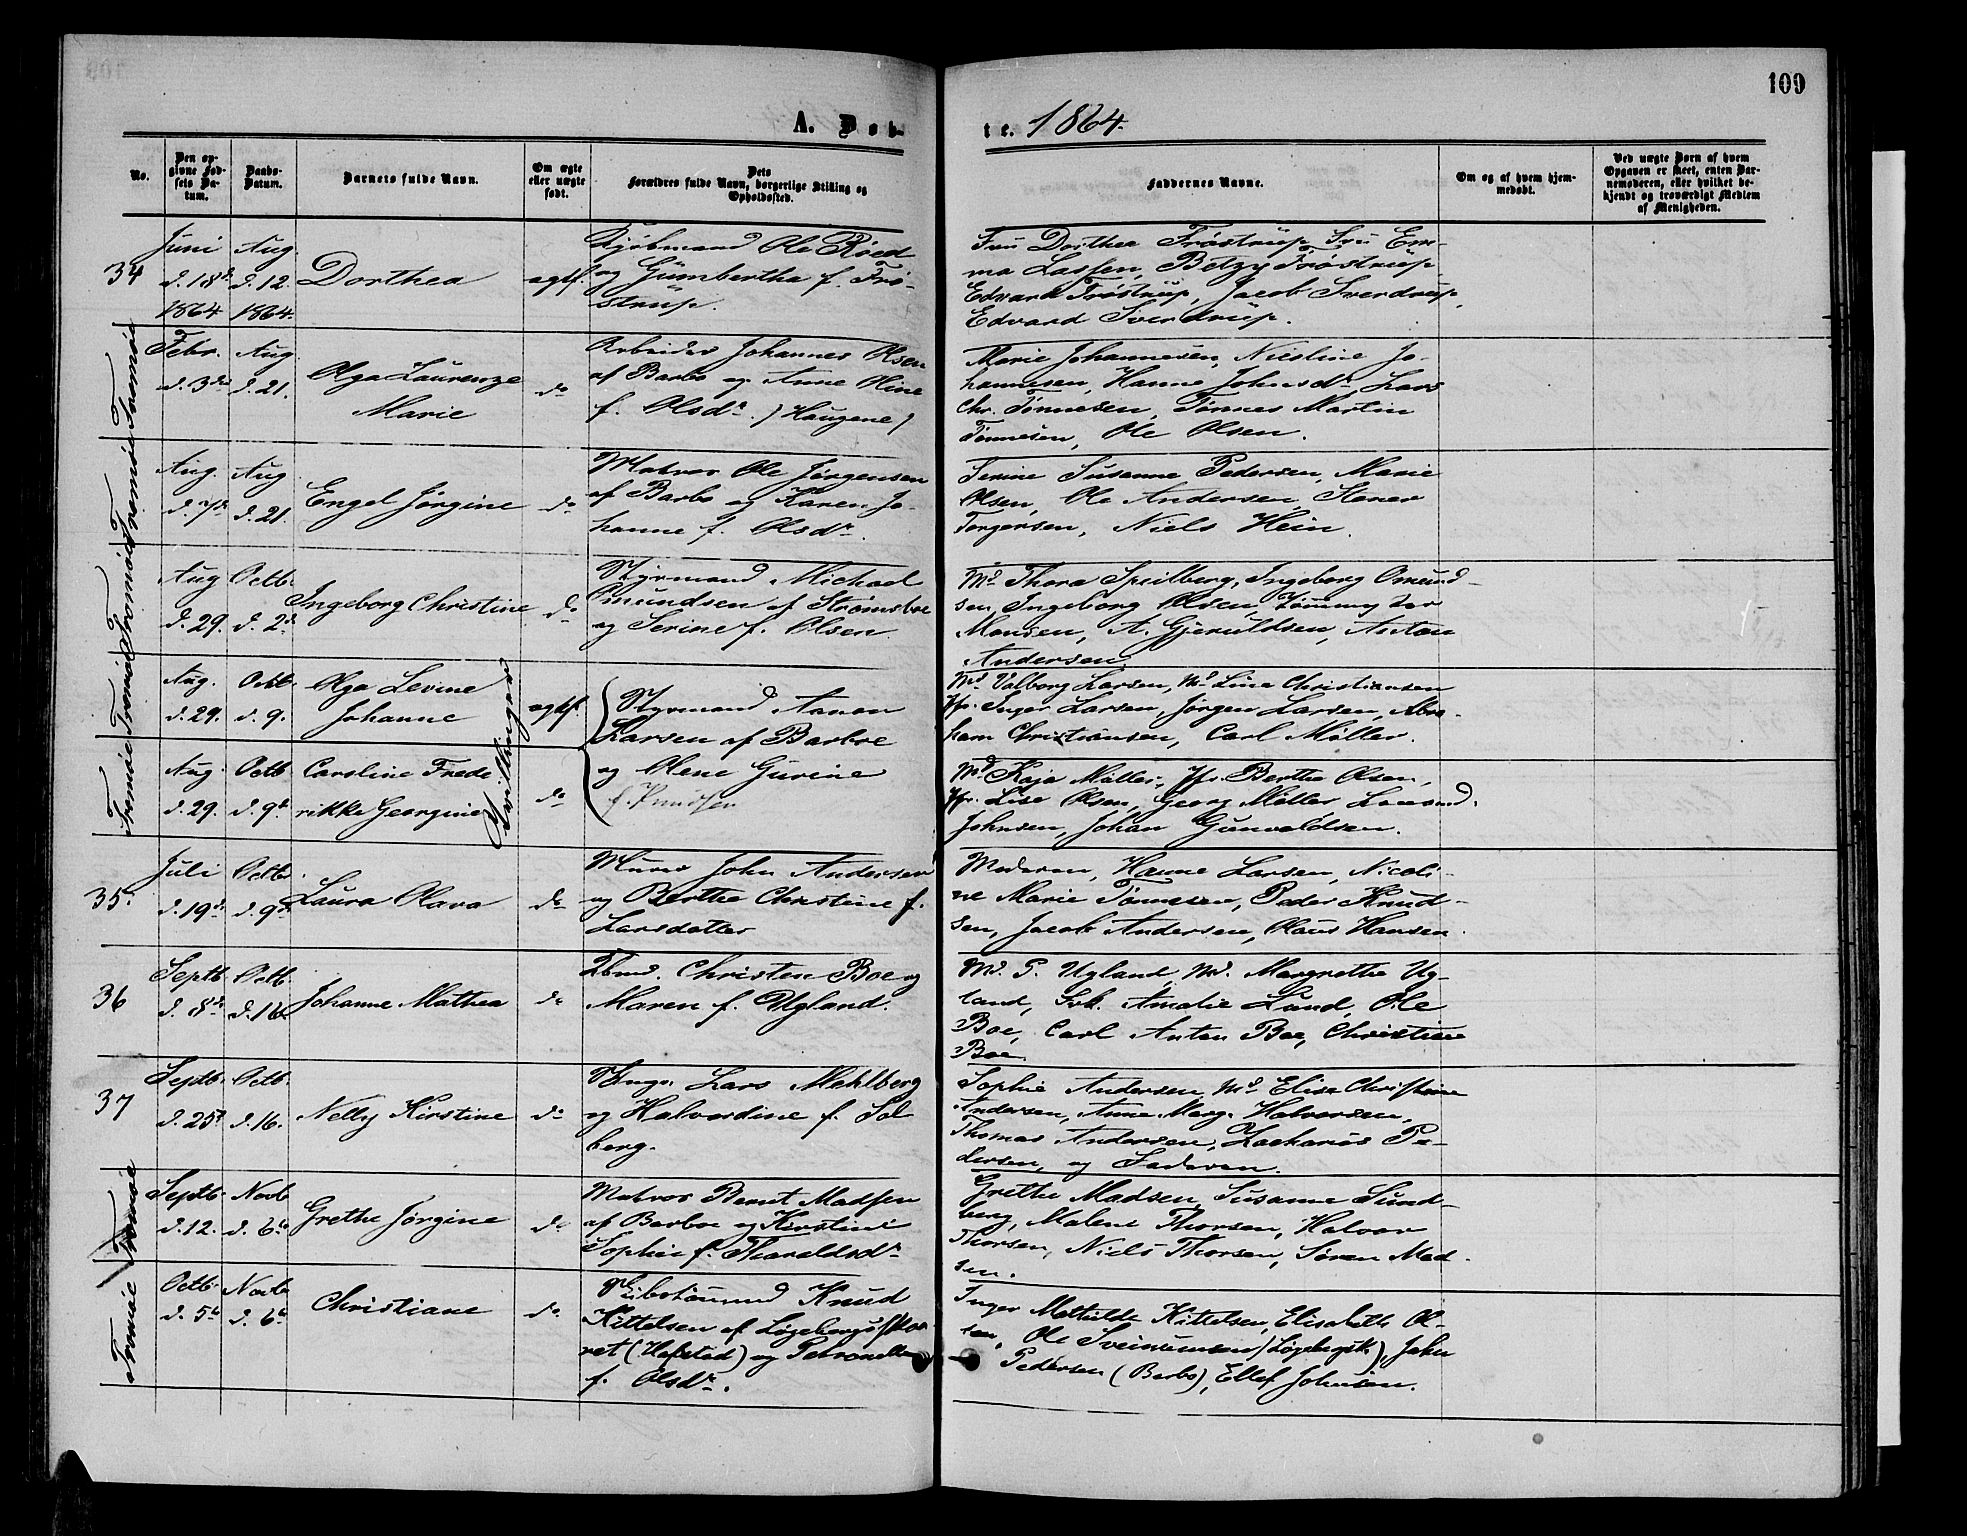 109
A. Døb-
te. 1864.
No.
Den op-
givne Fød-
sels Da-
tum.
Daabs-
Datum.
Barnets fulde Navn.
Om ægte
eller uægte
født.
Dets
Forældres fulde Navn, borgerlige Stilling og
Opholdssted.
Faddernes Navne.
Om og af hvem hjem-
medøbt.
Ved uægte Børn af hvem
Opgaven er skeet, enten Bar-
nemoderen, eller hvilket be-
kjendt og troværdigt Medlem
af Menigheden.
34
Juni
d. 18de
1864
Aug.
d. 12.
1864.
Dorthea
ægtf.
Kjøbmand Ole Röed
og Gümbertha f. Frö-
strup.
Fru Dorthea Fröstrup, Fru Em-
ma Lassen, Betzy Fröstrup
Edvard Fröstrup, Jacob Sverdrup,
Edvard Sverdrup.
Tromøe
Febr.
d. 3die
Aug.
d. 21.
Olga Laurenze
Marie
do
Arbeider Johannes Olsen
af Barbo og Anne Oline
f. Olsdr. (Haugene)
Marie Johannesen, Nicoline Jo-
hannesen, Hanne Johnsdr. Lars
Chr. Tønnesen, Tønnes Martin
Tønnesen, Ole Olsen.
Tromøe
Aug.
d. 7de
Aug.
d. 21.
Engel Jørgine
do
Matros Ole Jørgensen
af Barbo og Karen Jo-
hanne f. Olsdr.
Serine Susanne Pedersen, Marie
Olsen, Ole Andersen, Stener
Torgersen, Niels Hein.
Tromøe
Aug
d. 29.
Octb.
d. 2d.
Ingeborg Christine
do
Styrmand Michael
Omundsen af Strømsboe
og Serine f. Olsen
Md. Thora Speilberg, Ingeborg Omund-
sen, Ingeborg Olsen,
Monsen, A. Gjeruldsen, Anton
Andersen.
Tromøe
Aug.
d. 29.
Octb.
d. 9.
Olga Levine
Johanne
Tvillinger
ægtf.
Styrmand Aanon
Larsen af Barboe
og Olene Gurine
f. Knudsen
Md. Valborg Larsen, Md. Lina Christiansen
Jfr. Inger Larsen, Jørgen Larsen, Abra-
ham Christiansen, Carl Møller.
Tromøe
Aug.
d. 29.
Octb
d. 9de
Caroline Frede
rikke Georgine
do
Md. Kaja Møller, Jfr. Berthe Olsen,
Jfr. Lise Olsen, Georg Møller
Johnsen, Johan Gunvaldsen.
35.
Juli
d. 19de
Octb.
d. 9de
Laura Olava
do
Murer John Andersen
og Berthe Christine f.
Larsdatter
Moderen, Hanne Larsen, Nicoli-
ne Marie Tønnesen, Peder Knud-
sen, Jacob Andersen, Olaus Hansen.
36
Septb.
d. 8de
Octb.
d. 16
Johanne Mathea
do
Tbmd. Christen Boe og
Maren f. Ugland.
Md. P. Ugland, Md. Margrethe Ug-
land, Frk. Amalie Lund, Ole
Boe, Carl Anton Boe, Christian
Boe.
37
Septb.
d. 25de
Octb.
d. 16.
Nelly Kirstine
do
Lars Mehlberg
og Halvordine f. Sol
berg.
Sophie Andersen, Md. Elise Christiane
Andersen, Anne Marg. Halvorsen,
Thomas Andersen, Zacharias Pe-
dersen, og Faderen.
Tromøe
Septb.
d. 12.
Novb
d. 6te
Grethe Jørgine
do
Matros Bernt Madsen
af Barboe og Kirstine
Sophie f. Tharaldsdr.
Grethe Madsen, Susanne Lund-
berg, Malene Thorsen, Halvor
Thorsen, Niels Thorsen, Søren Mad-
sen.
Tromøe
Octb.
d. 5te
Novb
d. 6te
Christiane
do
Knud
Kittelsen af
(Hafstad) og Petronelle
f. Olsdr.
Inger Mathilde Kittelsen, Elisabeth Ol-
sen, Ole John
Pedersen (Barbo), Ellef Johnsen.